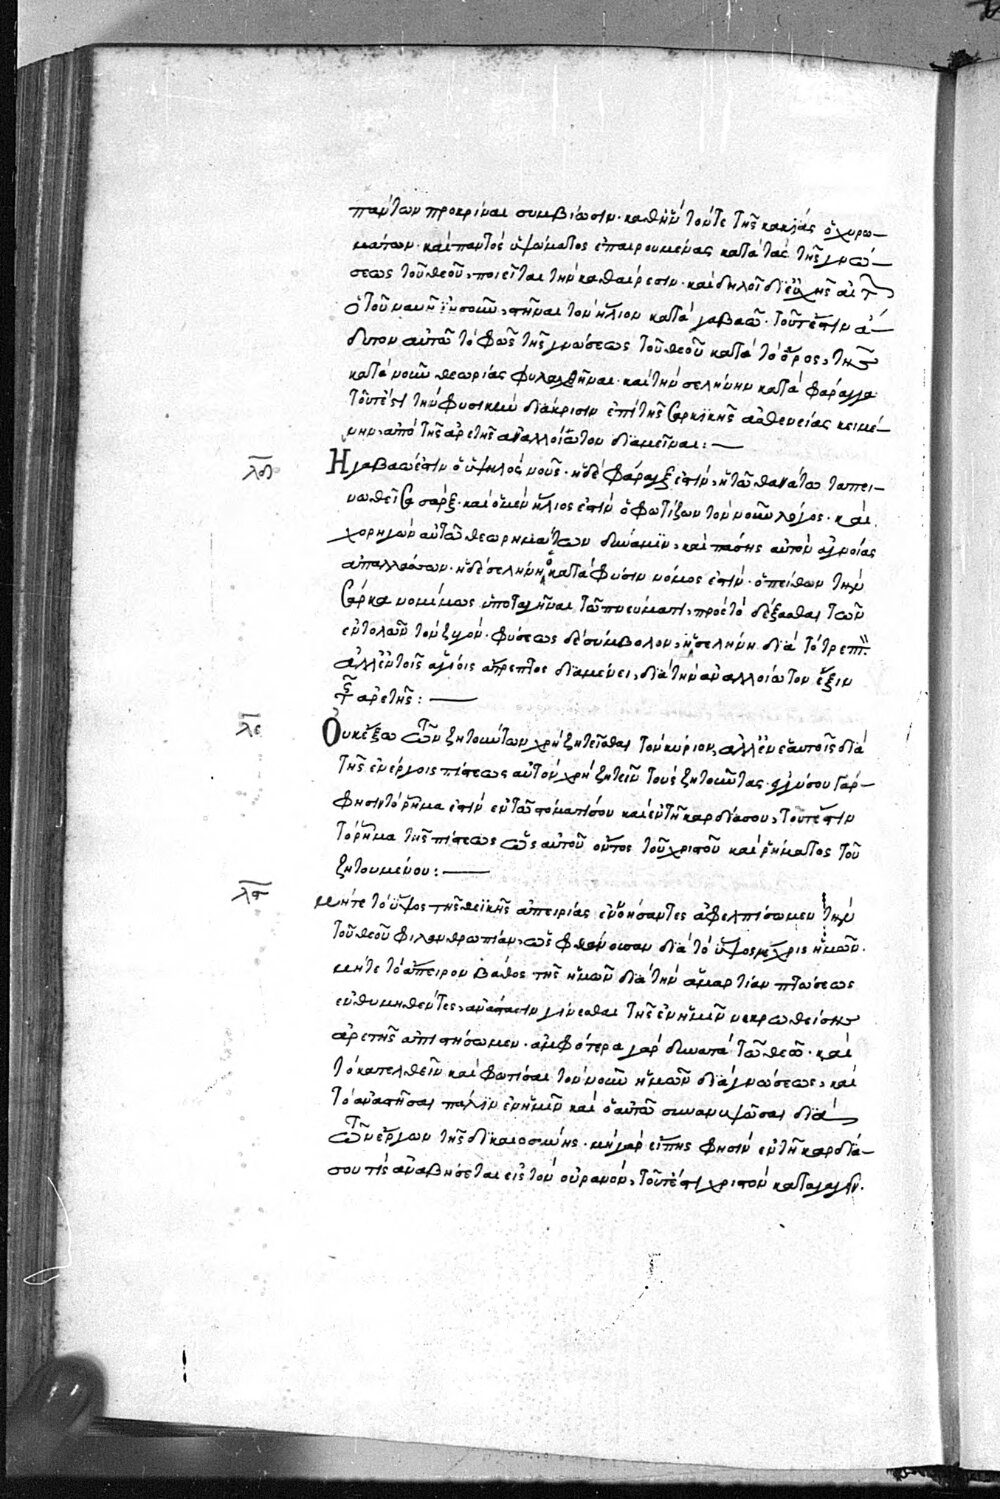 πάντων προκρίναι συμβίωσιν· καθ' ἣν τόν τε τῆς κακίας ὀχυρω-
μάτων· καὶ παντὸς ὑψώματος ἐπαιρουμένας κατὰ τῆς γνώ-
σεως τοῦ θεοῦ, ποιεῖται τὴν καθαίρεσιν· καὶ δηλοῖ δι' εὐχῆς αἰτ
ὁ τοῦ ναυῆ ἰησοῦς, στῆναι τὸν ἥλιον κατὰ γαβαῶ· τουτέστιν ἄ-
δυτον αὐτῶ τὸ φῶς τῆς γνώσεως τοῦ θεοῦ κατὰ τὸ ὄρος, τῆς
κατὰ νοῦν θεωρίας φυλαχθῆναι· καὶ τὴν σελήνην κατὰ φάραγγα
τουτέστι τὴν φυσικὴν διάκρισιν ἐπὶ τῆς σαρκικῆς ἀσθενείας κειμέ-
νην, ἀπὸ τῆς ἀρετῆς ἀναλλοίωτον διαμεῖναι:
λδ
Ἡ γαβαώ ἐστιν ὁ ὑψηλὸς νοῦς· ἡ δὲ φάραγξ ἐστὶν, ἡ τῶ θανάτω ταπει-
νωθεῖσα σάρξ· καὶ ὁ μὲν ἥλιος ἐστὶν ὁ φωτίζων τὸν νοῦν λόγος· καὶ
χορηγῶν αὐτῶ θεωρημάτων δύναμιν, καὶ πάσης αὐτὸν ἀγνοίας
ἀπαλλάσσων· ἡ δὲ σελήνη ὁ κατὰ φύσιν νόμος ἐστὶν· ὁ πείθων τὴν
σάρκα νομίμως ὑποταγῆναι τῶ πνεύματι, πρὸς τὸ δέξασθαι τῶν
ἐντολῶν τὸν ζυγόν· φύσεως δὲ σύμβολον, ἡ σελήνη διὰ τὸ τρεπτ
ἀλλ' ἐν τοῖς ἁγίοις ἄτρεπτος διαμένει, διὰ τὴν ἀναλλοίωτον ἕξιν
τῆς ἀρετῆς:
λε
Οὐκ ἔξω τῶν ζητούντων χρὴ ζητεῖσθαι τὸν κύριον, ἀλλ' ἐν ἑαυτοῖς διὰ
τῆς ἐν ἔργοις πίστεως αὐτὸν χρὴ ζητεῖν τοὺς ζητοῦντας· ἐγγύς σου γάρ-
φησιν τὸ ῥῆμα ἐστὶν ἐν τῶ στόματί σου καὶ ἐν τῆ καρδία σου, τουτέστιν
τὸ ῥῆμα τῆς πίστεως ὡς αὐτοῦ ὄντος τοῦ χριστοῦ καὶ ῥήματος τοῦ
ζητουμένου:
λστ
μήτε τὸ ὕψος τῆς θεϊκῆς ἀπειρίας ἐννοήσαντες ἀφελπίσωμεν τὴν
τοῦ θεοῦ φιλανθρωπίαν, ὡς φθάνουσαν διὰ τὸ ὕψος μέχρις ἡμῶν·
μήτε τὸ ἄπειρον βάθος τῆς ἡμῶν διὰ τὴν ἁμαρτίαν πτώσεως
ἐνθυμηθέντες, ἀνάστασιν γίνεσθαι τῆς ἐν ἡμῖν νεκρωθείσης
ἀρετῆς ἀπιστήσωμεν· ἀμφότερα γὰρ δυνατὰ τῶ θεῶ· καὶ
τὸ κατελθεῖν καὶ φωτίσαι τὸν νοῦν ἡμῶν διὰ γνώσεως, καὶ
τὸ ἀναστῆσαι πάλιν ἐν ἡμῖν καὶ ἑαυτῶ συνανυψῶσαι διὰ
τῶν ἔργων τῆς δικαιοσύνης· μὴ γὰρ εἴπης φησὶν ἐν τῆ καρδία-
σου τίς ἀναβήσεται εἰς τὸν οὐρανόν, τουτέστι χριστὸν καταγαγεῖν·